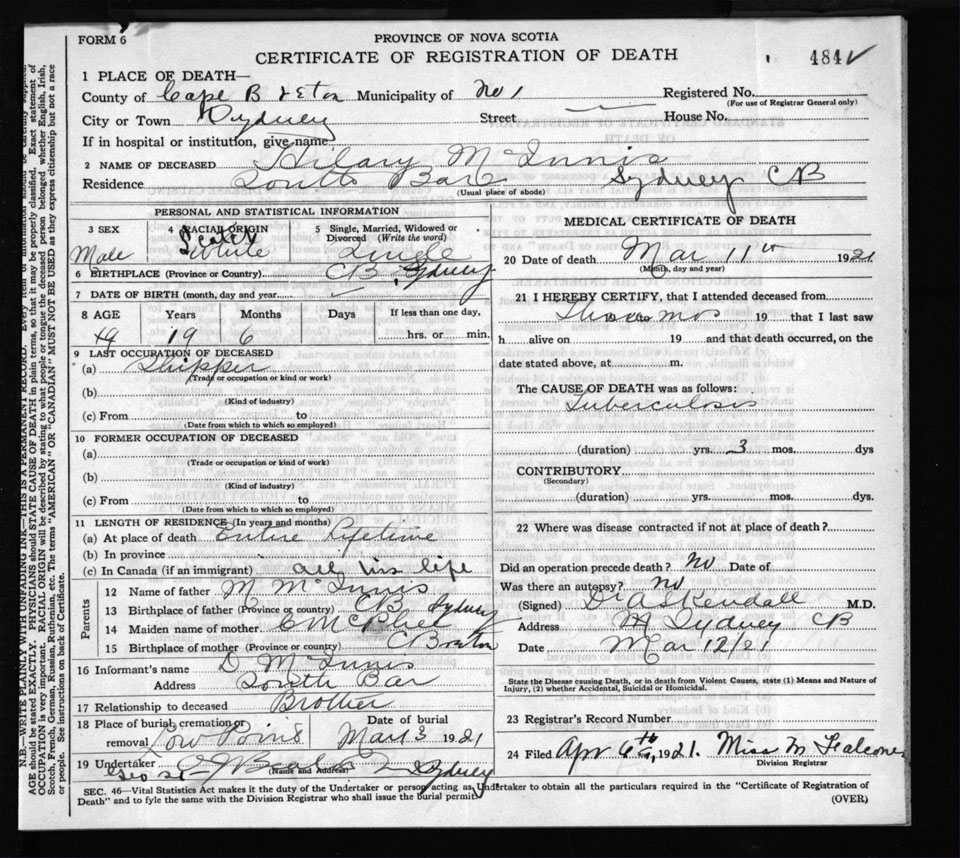 FORM 6
PROVINCE OF NOVA SCOTIA
CERTIFICATE OF REGISTRATION OF DEATH 484
1 PLACE OF DEATH—
County of Cape Breton Municipality of No 1 Registered No.
(For use of Registrar General only)
City or Town Sydney Street House No.
If in hospital or institution, give name
2 NAME OF DECEASED Hilary McInnis
Residence South Bar Sydney CB
(Usual place of abode)
PERSONAL AND STATISTICAL INFORMATION
3 SEX 4 RACIAL ORIGIN 5 Single, Married, Widowed or Divorced (Write the word)
Male Scotch White Single
6 BIRTHPLACE (Province or Country) CB Sydney
7 DATE OF BIRTH (month, day and year)
8 AGE Years Months Days If less than one day,
19 6 hrs. or min.
9 LAST OCCUPATION OF DECEASED
(a) Shipper
(Trade or occupation or kind or work)
(b)
(Kind of industry)
(c) From to
(Date from which to which so employed)
10 FORMER OCCUPATION OF DECEASED
(a)
(Trade or occupation or kind or work)
(b)
(Kind of industry)
(c) From to
(Date from which to which so employed)
11 LENGTH OF RESIDENCE (In years and months)
(a) At place of death Entire lifetime
(b) In province
(c) In Canada (if an immigrant) all his life
Parents
12 Name of father M McInnis
13 Birthplace of father (Province or country) CB Sydney
14 Maiden name of mother C McPhee
15 Birthplace of mother (Province or country) C Breton
16 Informant's name D McInnis
Address South Bar
17 Relationship to deceased Brother
18 Place of burial, cremation or removal Low Point Date of burial Mar 3 1921
19 Undertaker Geo St Beaton Sydney
(Name and Address)
MEDICAL CERTIFICATE OF DEATH
20 Date of death Mar 11th 1921
(Month, day and year)
21 I HEREBY CERTIFY, that I attended deceased from
mos 19 that I last saw
h alive on 19 and that death occurred, on the
date stated above, at m.
The CAUSE OF DEATH was as follows:
Tuberculosis
(duration) yrs. 3 mos. dys
CONTRIBUTORY
(Secondary)
(duration) yrs. mos. dys.
22 Where was disease contracted if not at place of death?
Did an operation precede death? No Date of
Was there an autopsy? No
(Signed) Dr A S Kendall M.D.
Address Sydney CB
Date Mar 12/21
State the Disease causing Death, or in death from Violent Causes, state (1) Means and Nature of
Injury, (2) whether Accidental, Suicidal or Homicidal.
23 Registrar's Record Number
24 Filed Apr 6th, 1921. Miss M Falconer
Division Registrar
SEC. 46—Vital Statistics Act makes it the duty of the Undertaker or person acting as Undertaker to obtain all the particulars required in the "Certificate of Registration of
Death" and to fyle the same with the Division Registrar who shall issue the burial permit.
(OVER)
N.B.—WRITE PLAINLY WITH UNFADING INK—THIS IS A PERMANENT RECORD. Every item of information should be carefully supplied.
AGE should be stated EXACTLY. PHYSICIANS should STATE CAUSE OF DEATH in plain terms, so that it may be properly classified. Exact statement of
OCCUPATION is very important. RACIAL ORIGIN will be described by stating to what people or tongue the deceased person belonged whether English, Irish,
Scotch, French, German, Russian, Ruthenian, etc. The terms "AMERICAN" OR "CANADIAN" MUST NOT BE USED as they express citizenship but not a race
or people. See instructions on back of Certificate.